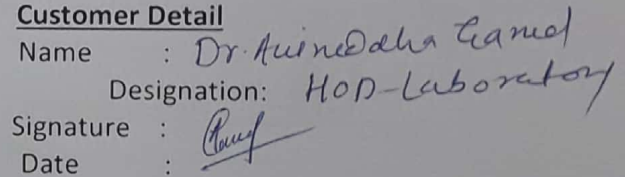 Customer Detail
Name : Dr.
Designation: HOD-Laboratory
Signature :
Date :